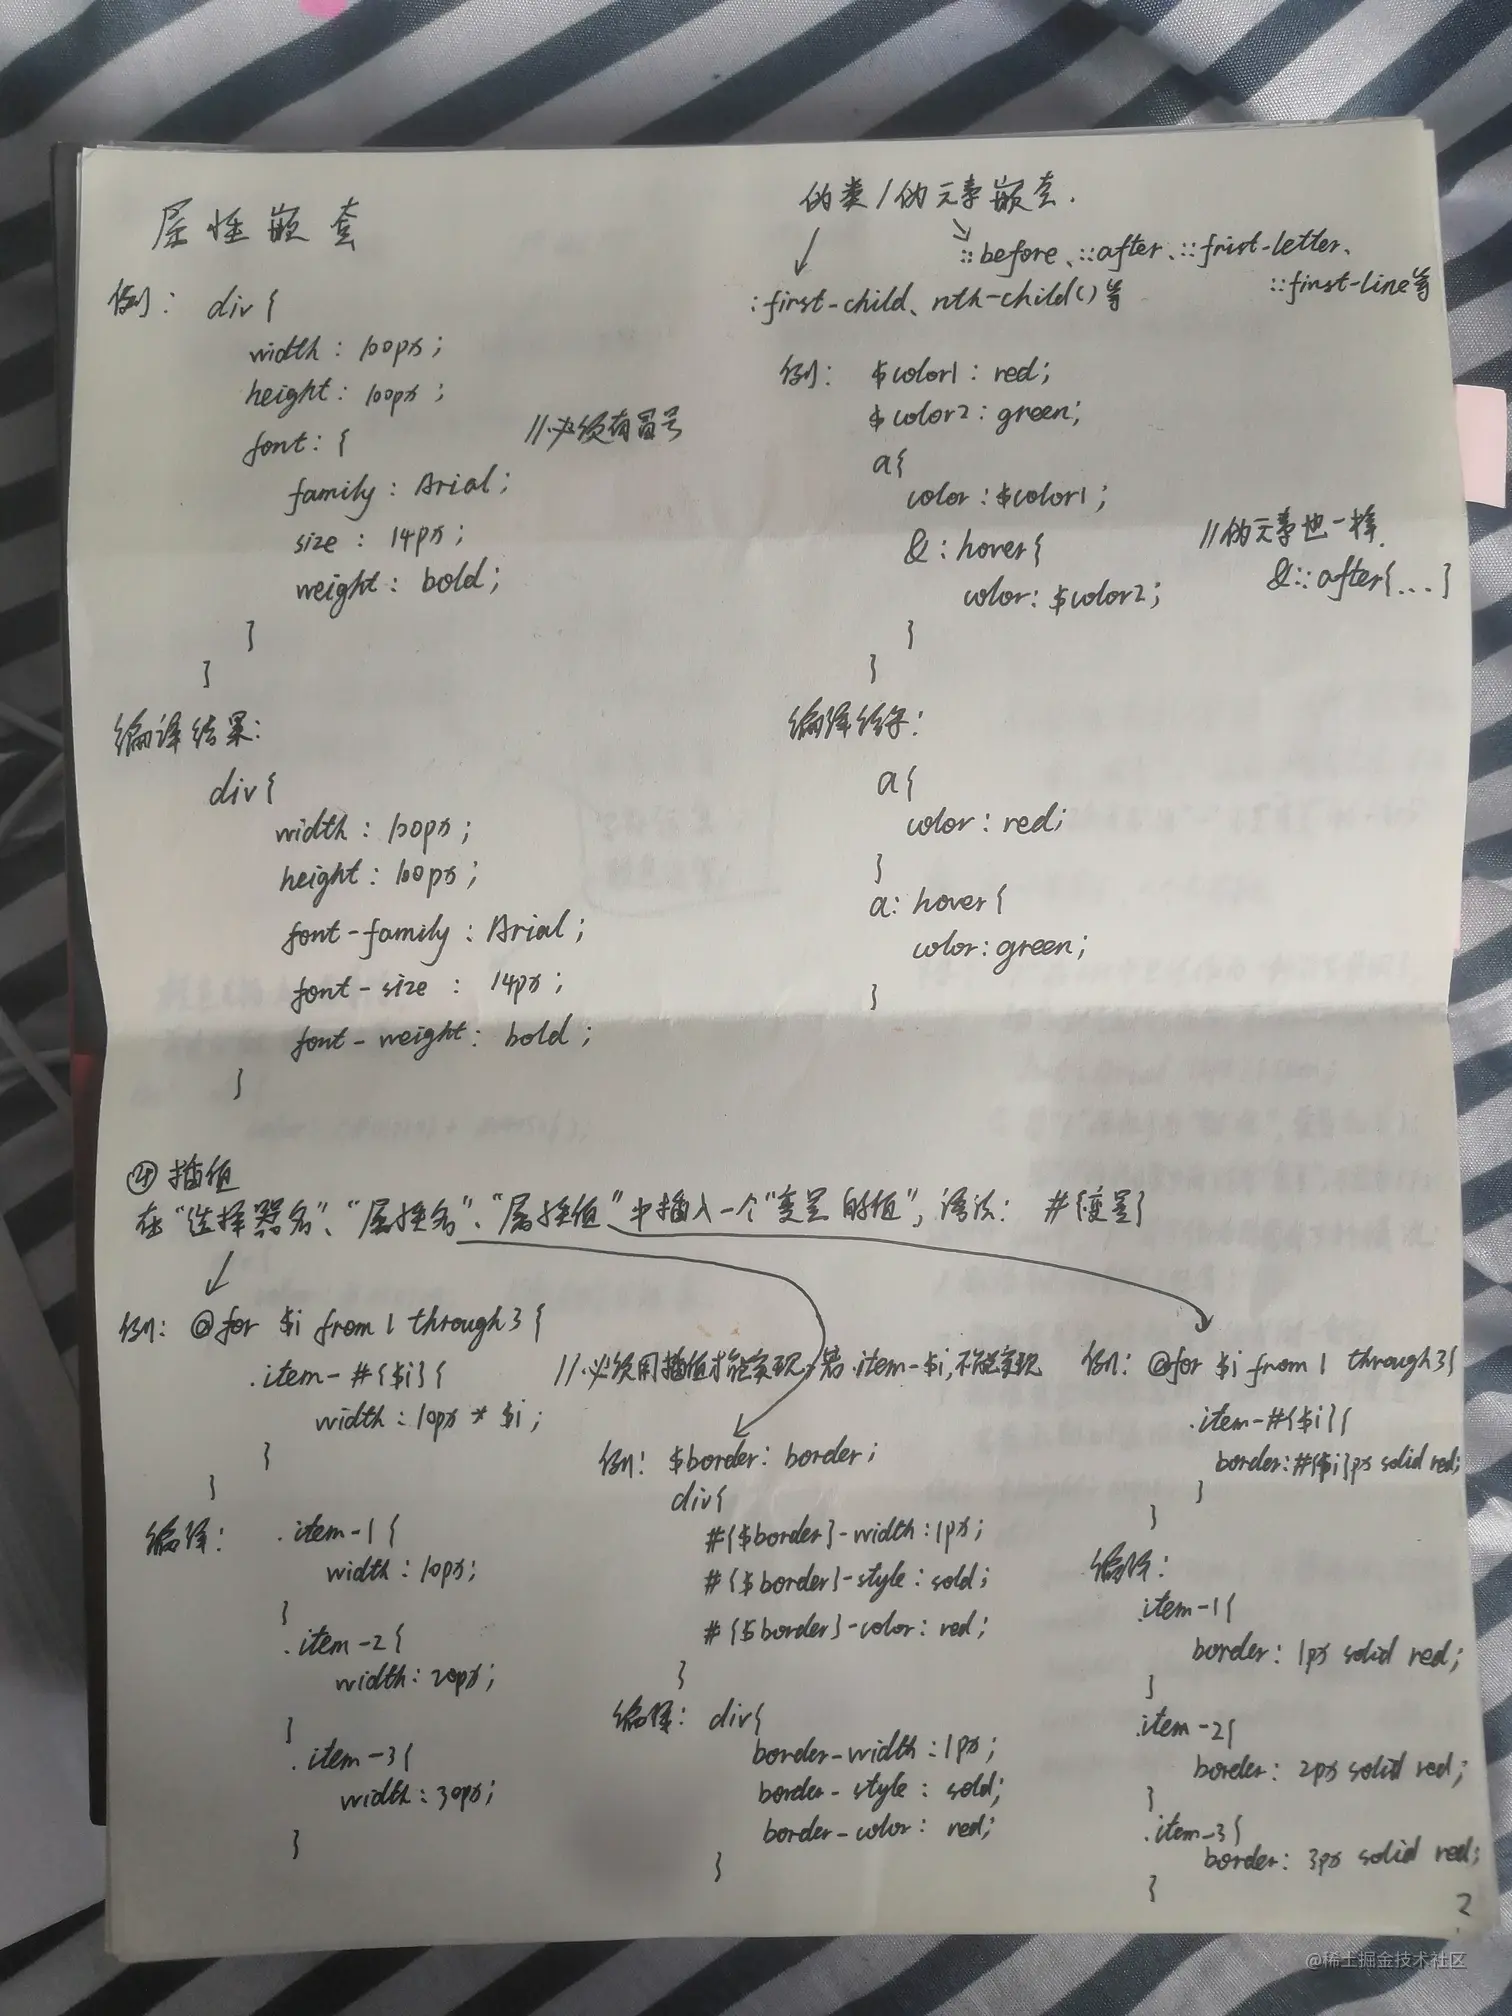 属性嵌套
例： div{
width：100px；
height：100px；
font：{ //必须有冒号
family：Arial；
size：14px；
weight：bold；
}
}
编译结果：
div{
width：100px；
height：100px；
font-family：Arial；
font-size：14px；
font-weight：bold；
}
伪类/伪元素嵌套.
::before、::after、::frist-letter、
::first-line等
:first-child、nth-child()等
例： $color1：red;
$color2：green;
a{
color：$color1；
&：hover{ //伪元素也一样.
color：$color2； &::after{...}
}
}
编译结果：
a{
color：red;
}
a：hover{
color：green;
}
④ 插值
在“选择器名”、“属性名”、“属性值”中插入一个“变量的值”，语法： #{变量}
例： @for $i from 1 through 3 {
.item-#{$i}{ //必须用插值才能实现，若.item-$i,不能实现
width：10px * $i；
}
}
编译： .item-1{
width：10px;
}
.item-2{
width：20px;
}
.item-3{
width：30px;
}
例： $border：border；
div{
#{$border}-width：1px；
#{$border}-style：sold；
#{$border}-color：red；
}
编译： div{
border-width：1px；
border-style：sold;
border-color：red;
}
例： @for $i from 1 through 3{
.item-#{$i}{
border：#{$i}px solid red;
}
}
编译：
.item-1{
border：1px solid red;
}
.item-2{
border：2px solid red;
}
.item-3{
border：3px solid red;
}
2
@稀土掘金技术社区